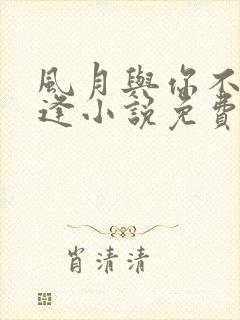 風月與你不
逢小說免費
肖清清